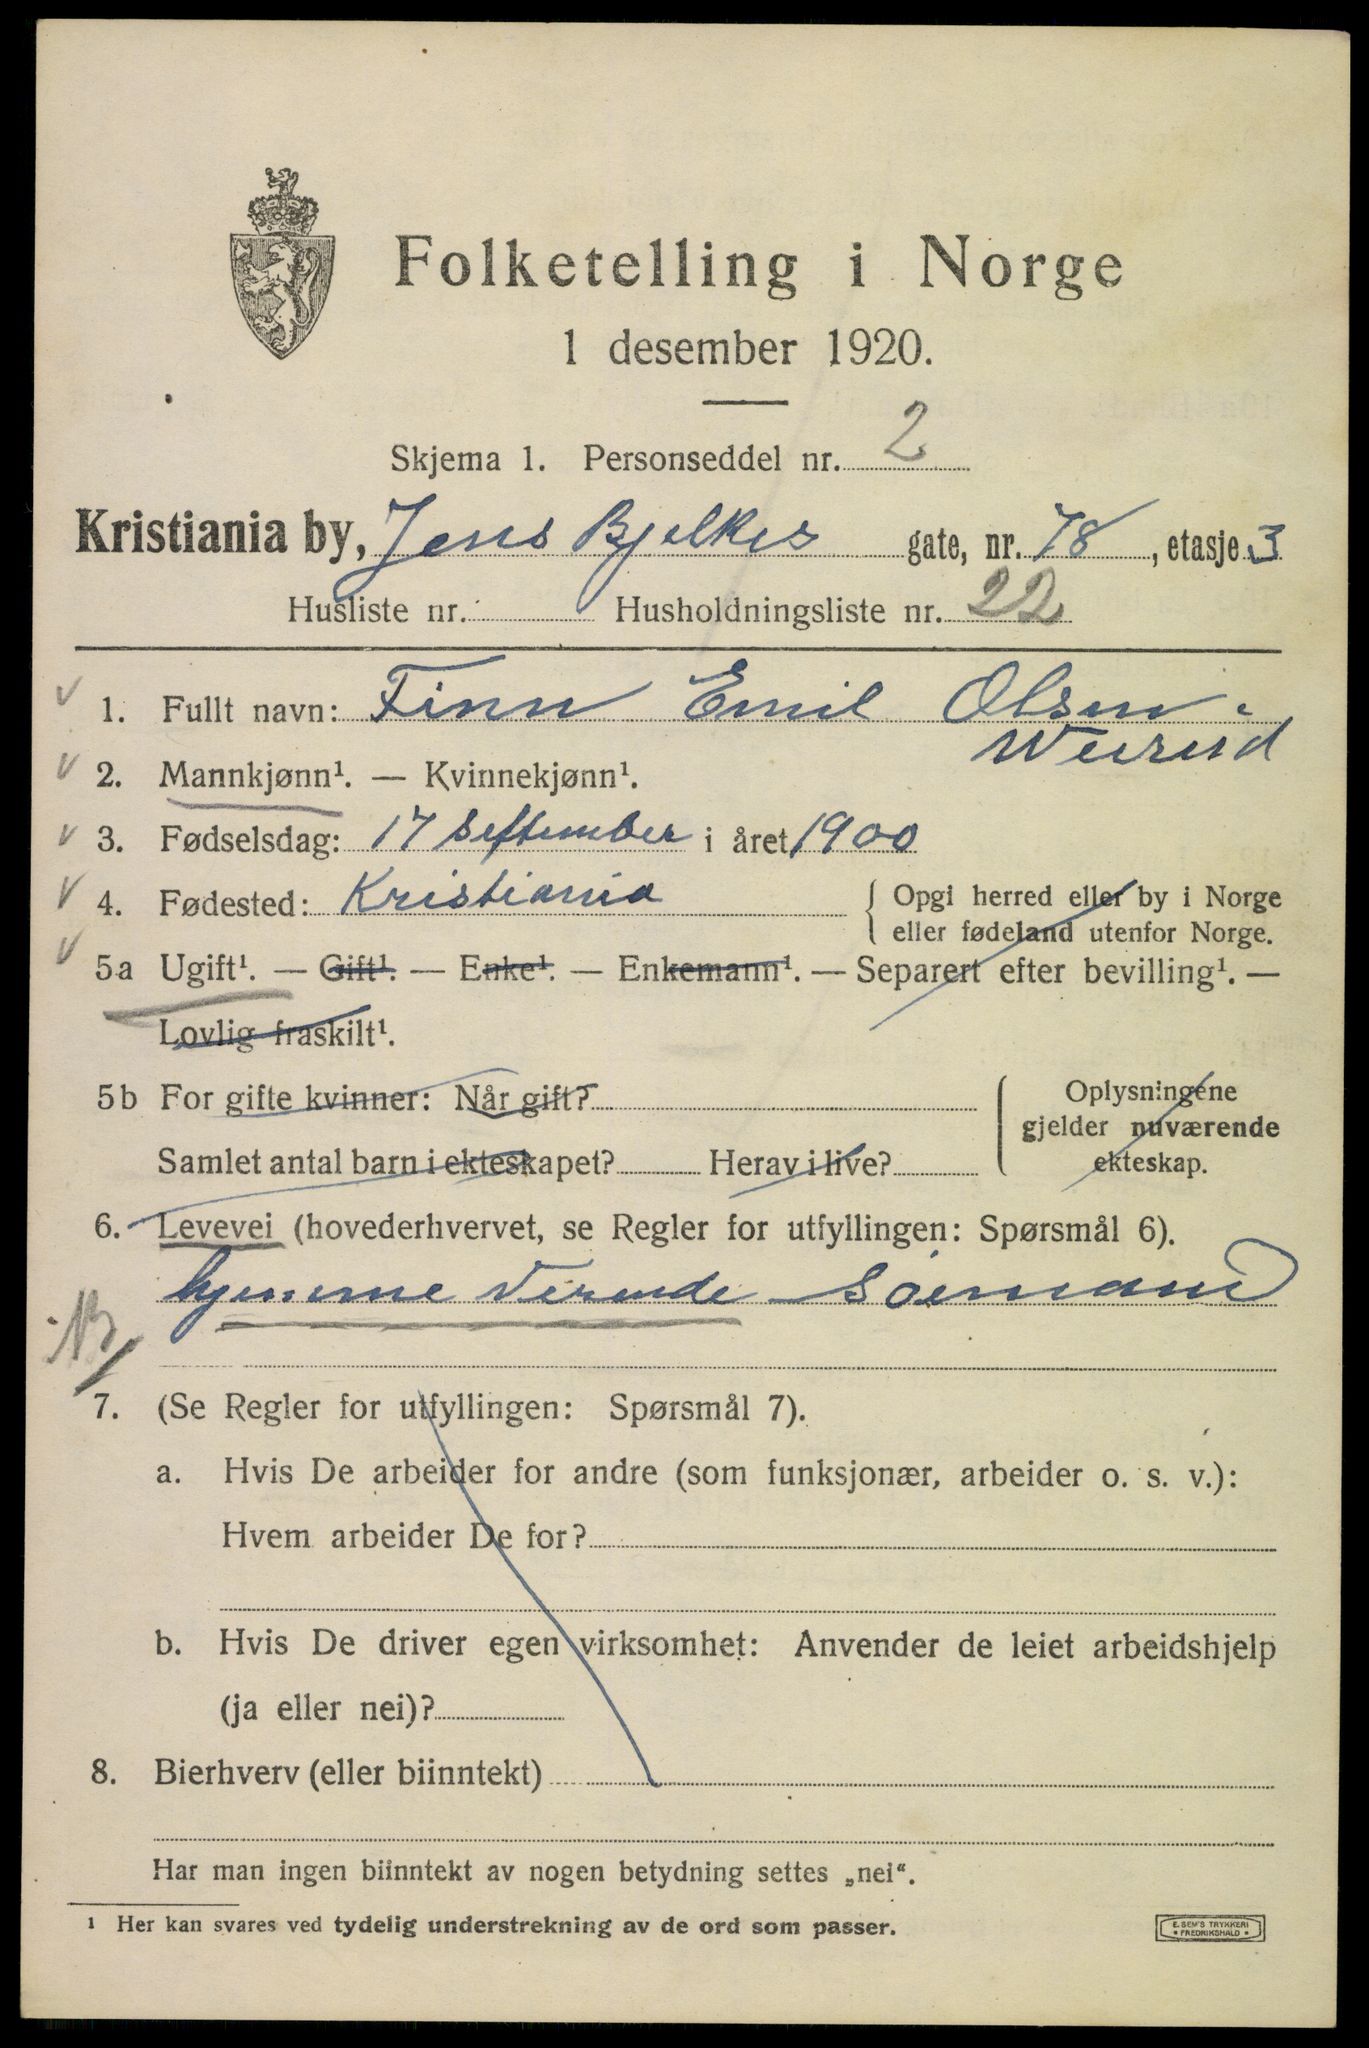 Folketelling i Norge
1 desember 1920.
Skjema 1. Personseddel nr. 2
Kristiania by, Jens Bjelkes gate, nr. 78, etasje 3
Husliste nr. Husholdningsliste nr. 22
1. Fullt navn: Finn Emil Olsen
Weirud
2. Mannkjønn¹. — Kvinnekjønn¹.
3. Fødselsdag: 17 September i året 1900
4. Fødested: Kristiania { Opgi herred eller by i Norge
eller fødeland utenfor Norge.
5a Ugift¹. — Gift¹. — Enke¹. — Enkemann¹. — Separert efter bevilling¹. —
Lovlig fraskilt¹.
5b For gifte kvinner: Når gift? Oplysningene
gjelder nuværende
Samlet antal barn i ekteskapet? Herav i live? ekteskap.
6. Levevei (hovederhvervet, se Regler for utfyllingen: Spørsmål 6).
hjemme Verende Sőemand
7. (Se Regler for utfyllingen: Spørsmål 7).
a. Hvis De arbeider for andre (som funksjonær, arbeider o. s. v.):
Hvem arbeider De for?
b. Hvis De driver egen virksomhet: Anvender de leiet arbeidshjelp
(ja eller nei)?
8. Bierhverv (eller biinntekt)
Har man ingen biinntekt av nogen betydning settes „nei“.
1 Her kan svares ved tydelig understrekning av de ord som passer.
E. SEM'S TRYKKERI
* FREDRIKSHALD *